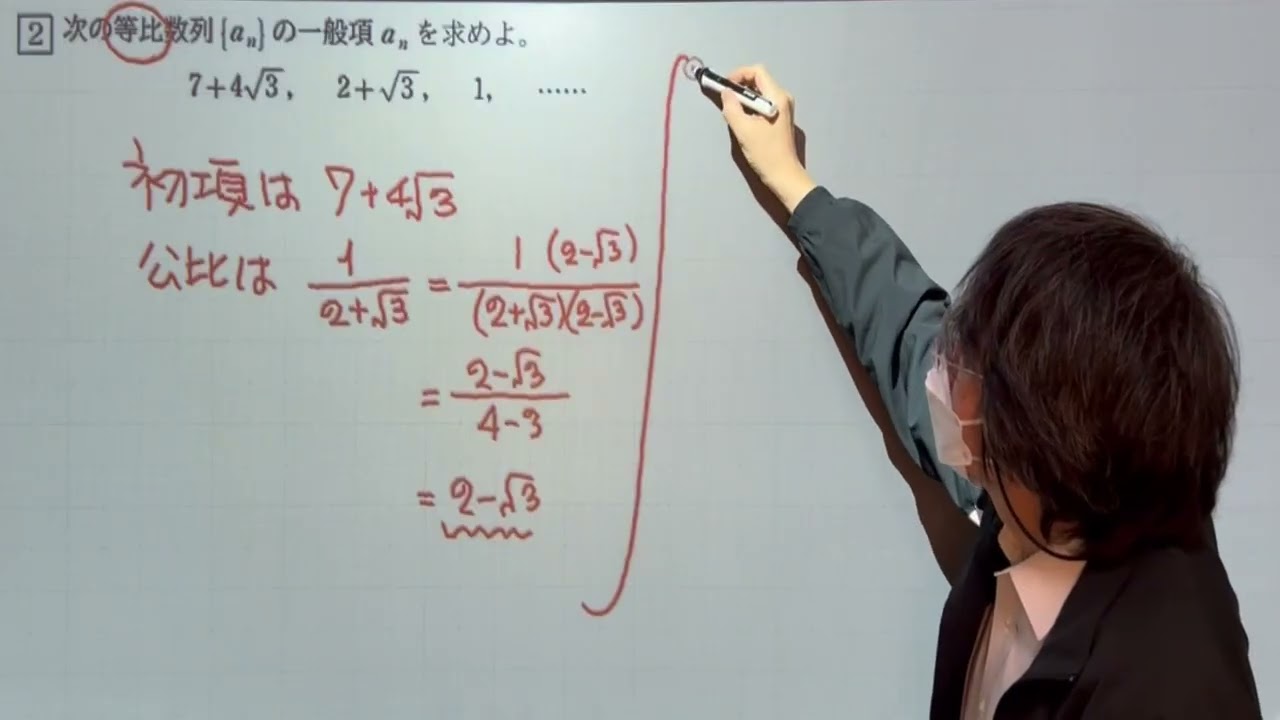 2 次の等比数列{aₙ}の一般項 aₙ を求めよ。
7+4√3, 2+√3, 1, ……
初項は 7+4√3
公比は 1/(2+√3) = 1(2-√3)/(2+√3)(2-√3)
= (2-√3)/(4-3)
= 2-√3